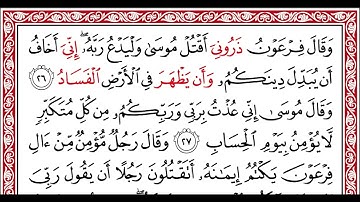 وَقَالَ فِرْعَوْنُ ذَرُونِىٓ أَقْتُلْ مُوسَىٰ وَلْيَدْعُ رَبَّهُۥٓ إِنِّىٓ أَخَافُ
أَن يُبَدِّلَ دِينَكُمْۥ وَأَن يَظْهَرَ فِى ٱلْأَرْضِ ٱلْفَسَادُ ٢٦
وَقَالَ مُوسَىٰٓ إِنِّى عُذْتُ بِرَبِّى وَرَبِّكُمۥ مِن كُلِّ مُتَكَبِّرٍ
لَّا يُؤْمِنُ بِيَوْمِ ٱلْحِسَابِ ٢٧ وَقَالَ رَجُلٌ مُّؤْمِنٌ مِّنْ ءَالِ
فِرْعَوْنَ يَكْتُمُ إِيمَـٰنَهُۥٓ أَتَقْتُلُونَ رَجُلًا أَن يَقُولَ رَبِّىَ